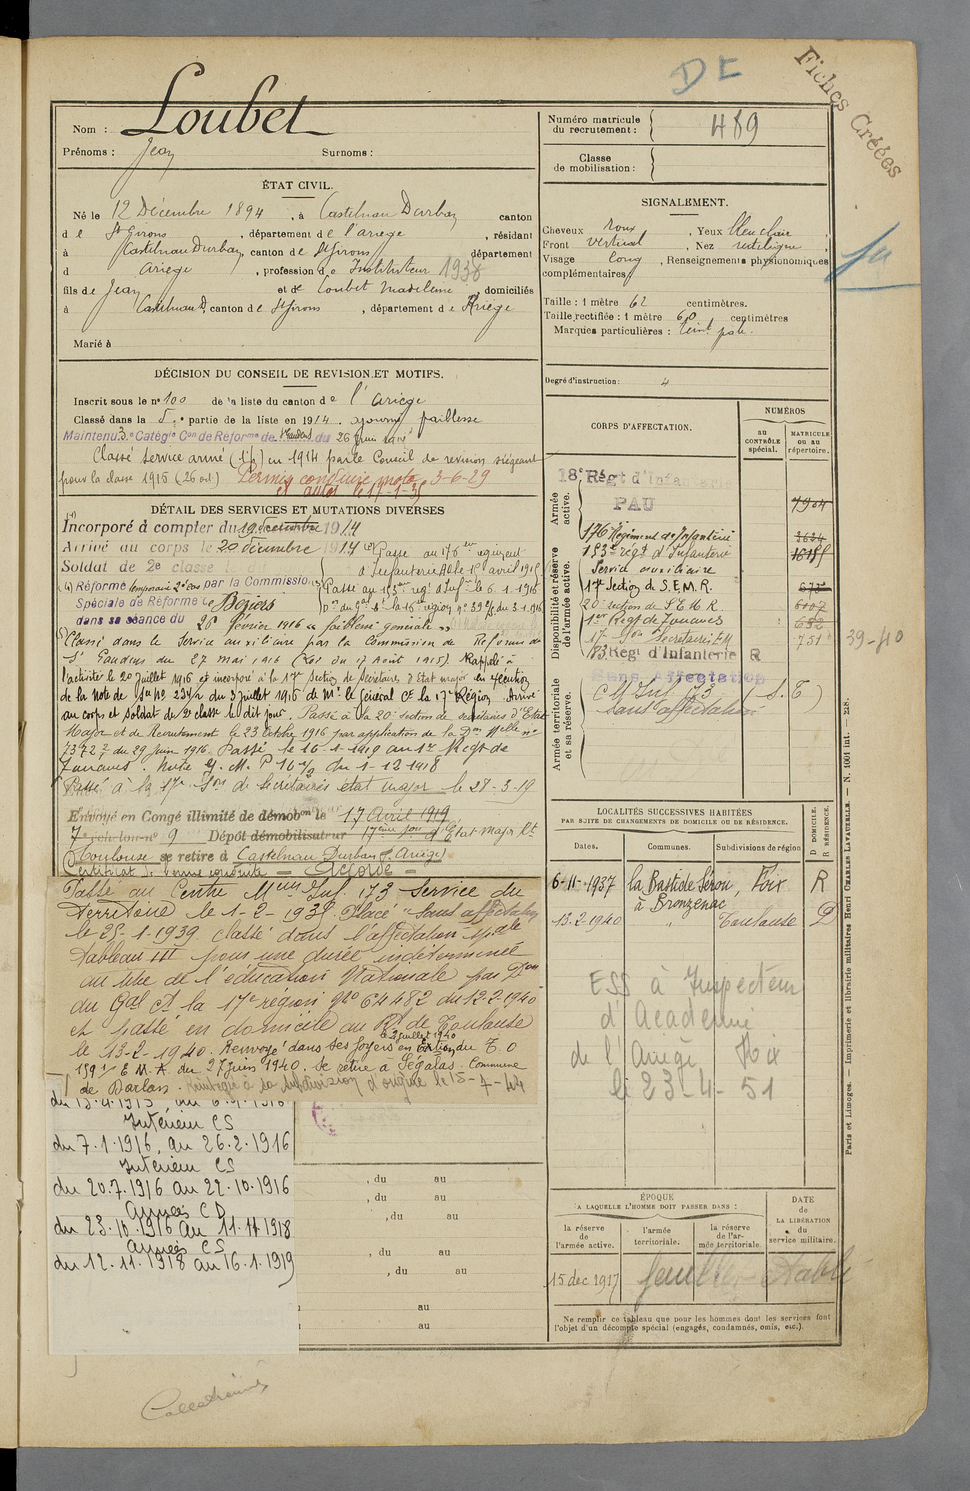 DE
Fiches Créées
Nom : Loubet
Prénoms : Jean Surnoms :
Numéro matricule du recrutement : 489
Classe de mobilisation :
ÉTAT CIVIL.
Né le 12 Décembre 1894, à Castelnau Durban canton
de St Girons, département de l'ariège, résidant
à Castelnau Durban, canton de St Girons département
d ariège, profession de Instituteur 1938
fils de Jean et de Loubet Madeleine, domiciliés
à Castelnau D, canton de St Girons, département de Ariège
Marié à
SIGNALEMENT.
Cheveux roux, Yeux bleu clair,
Front vertical, Nez rectiligne,
Visage long, Renseignements physionomiques
complémentaires
Taille : 1 mètre 62 centimètres.
Taille rectifiée : 1 mètre 60 centimètres
Marques particulières : teint pâle.
Degré d'instruction : 4
DÉCISION DU CONSEIL DE REVISION ET MOTIFS.
Inscrit sous le n° 100 de la liste du canton de l'Ariège
Classé dans la 5e partie de la liste en 1914. ajourné faiblesse
Maintenu 3e Catégie Con de Réforme de St Gaudens du 26 Juin
Classé service armé en 1914 par le Conseil de revision siégeant
pour la classe 1915 (26 oct) Permis conduire moto 3-6-29
et autos le 17-1-35
DÉTAIL DES SERVICES ET MUTATIONS DIVERSES
Incorporé à compter du 19 décembre 1914
Arrivé au corps le 20 décembre 1914 Passé au 176e régiment
Soldat de 2e classe le dit d'Infanterie Alte 15 avril 1915
Réformé temporaire 2e par la Commission Passé au 153e régt d'Infie le 6.1.1916
Spéciale de Réforme de Béziers
dans sa séance du 26 février 1916 « faiblesse générale »
Classé dans le Service auxiliaire par la Commission de Réforme de
St Gaudens du 27 mai 1916 (Loi du 17 Août 1915) Rappelé à
l'activité le 20 Juillet 1916 et incorporé à la 17e Section de Secrétaires d'Etat major en exécution
de la Note de du 3 juillet 1916 de Mr le Général Ct la 17e Région Arrivé
au corps et soldat de 2e classe le dit jour. Passé à la 20e section de secrétaires d'Etat
Major et de Recrutement le 23 Octobre 1916 par application de la Don Mlle no
7372 du 29 Juin 1916. Passé le 16-1-1919 au 1er Régt de
Zouaves. Note G.M.P du 1-12-1918
Passé à la 17e Son de Secrétaires état major le 28-3-19
Envoyé en Congé illimité de démobon le 17 Avril 1919
7e échelon no 9 Dépôt démobilisateur 17ème Son d'Etat Major Rt
Toulouse se retire à Castelnau Durban (Ariège)
Certificat de bonne conduite = Accordé =
Passé au Centre Mon Inf. 173 Service du
Territoire le 1-2-1938. Placé "Sans affectation
le 25-1-1939. classé dans l'affectation Spale
Tableau III pour une durée indéterminée
au titre de l'éducation Nationale par Don
du Gal Ct la 17e région No 64482 du 12-2-1940
et passé en domicile au Rt de Toulouse
le 13-2-1940. Renvoyé dans ses foyers le 2 juillet 1940 en Extion du T.O
159 1/E.M.A. du 27 juin 1940. se retire à Ségalas. Commune
de Darlan. Réintégré à la subdivision d'origine le 15-7-44
Intérieur CS
du 7.1.1916, au 26.2.1916
Intérieur CS
du 20.7.1916 au 22.10.1916
Armées CD
du 23.10.1916 au 11.11.1918
Armées CS
du 12.11.1918 au 16.1.1919
, du au
, du au
, du au
, du au
, du au
au
au
CORPS D'AFFECTATION.
NUMÉROS
au CONTRÔLE spécial.
MATRICULE ou au répertoire.
Armée active.
18e Régt d'Infanterie
PAU 7904
Disponibilité et réserve de l'armée active.
176 Régiment d'Infanterie
153e régt d'Infanterie
Service auxiliaire
17e Section de S.E.M.R.
20e section de S E M R. 6107
1er Régt de Zouaves 652
17e Son Secrétaires EM 751 39-40
83 Régt d'Infanterie R
Armée territoriale et sa réserve.
Sans affectation
CM Inf 173 (S.T)
Sans affectation
LOCALITÉS SUCCESSIVES HABITÉES
PAR SUITE DE CHANGEMENTS DE DOMICILE OU DE RÉSIDENCE.
Dates. Communes. Subdivisions de région D DOMICILE. R RÉSIDENCE.
6-11-1937 la Bastide Sérou, Foix R
à Bronzenac
13-2-1940 " Toulouse D
ESS à Inspecteur
d'Academie
de l'Ariège Foix
le 23-4-51
ÉPOQUE
A LAQUELLE L'HOMME DOIT PASSER DANS :
la réserve de l'armée active.
l'armée territoriale.
la réserve de l'armée territoriale.
DATE de LA LIBÉRATION du service militaire.
15 dec 1917
Ne remplir ce tableau que pour les hommes dont les services font
l'objet d'un décompte spécial (engagés, condamnés, omis, etc.).
Paris et Limoges. — Imprimerie et librairie militaires Henri CHARLES-LAVAUZELLE. — N. 1001 int. — 218.